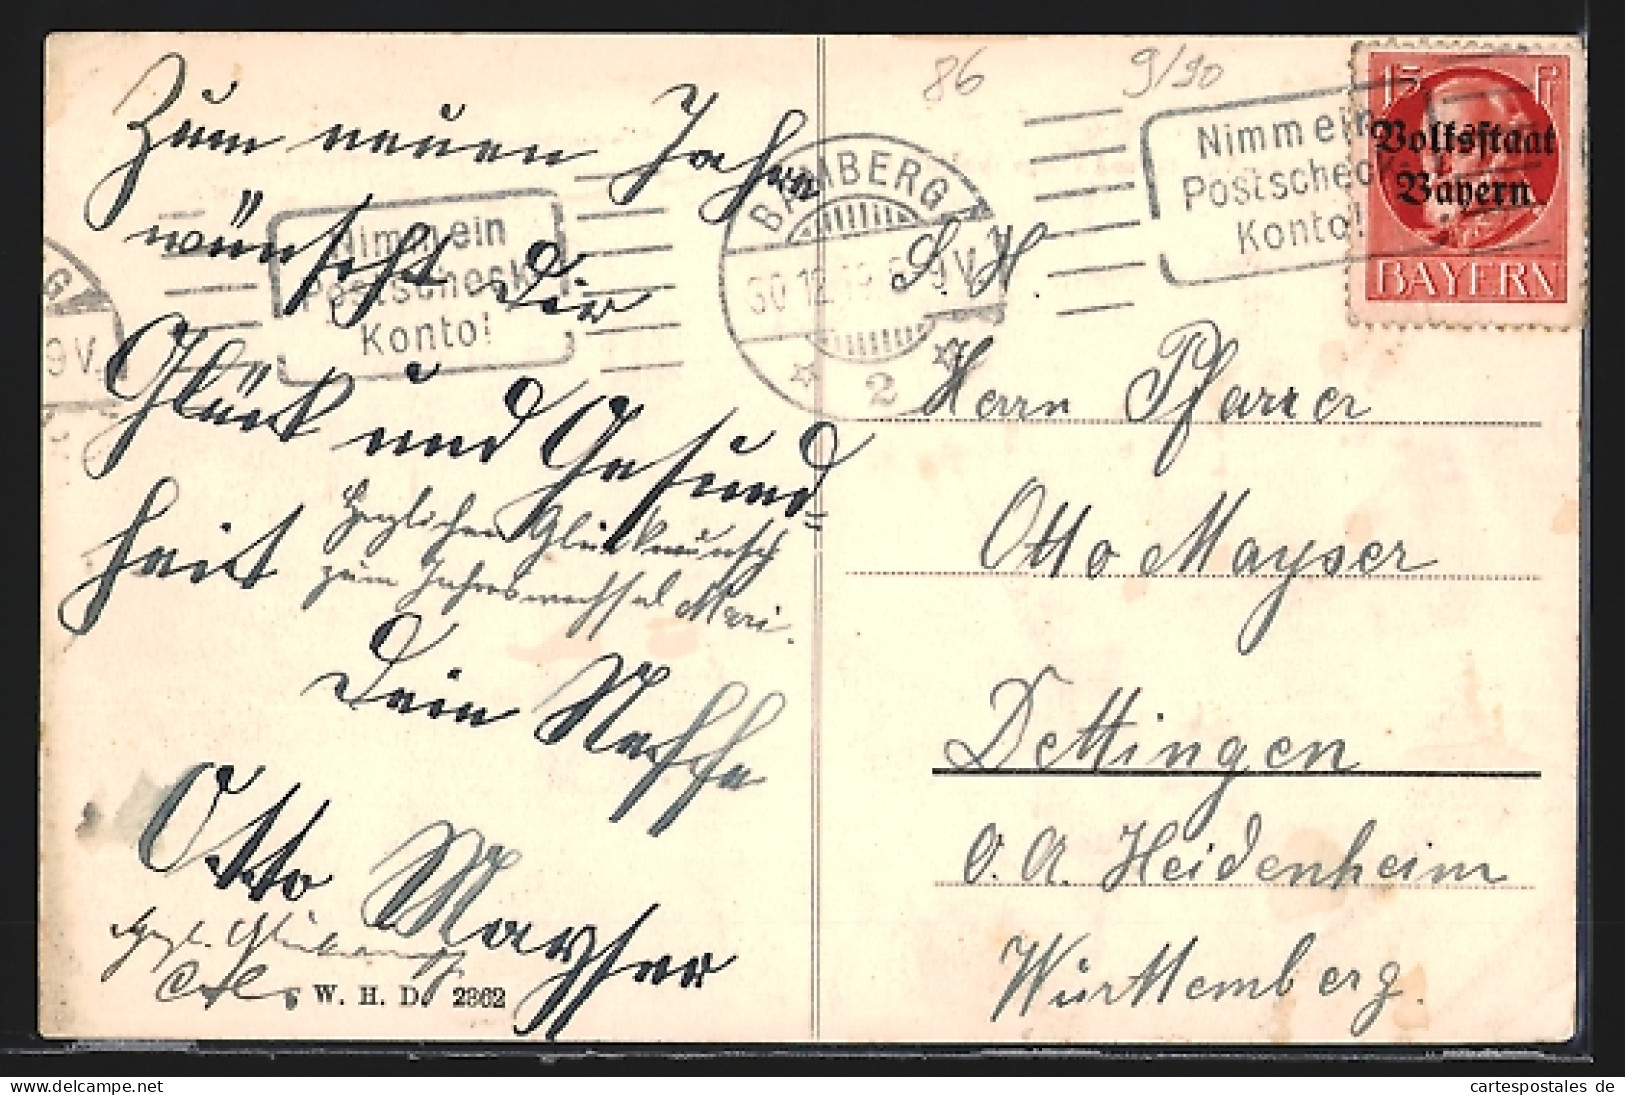 Zum neuen Jahre
wünscht Dir
Glück und Gesund=
heit
Herzlichen Glückwunsch
zum Jahreswechsel Mari.
Dein Neffe
Otto Mayser
Herzl. 
W. H. D. 2362
86
9/90
Nimm ein
Postscheck
Konto!
G
9V.
BAMBERG
30.12.19. 8-9V.
2
Nimm ein
Postscheck
Konto!
15 Pf
Volksstaat
Bayern
BAYERN
S. H.
Herrn Pfarrer
Otto Mayser
Dettingen
O. A. Heidenheim
Württemberg.
cartespostales de